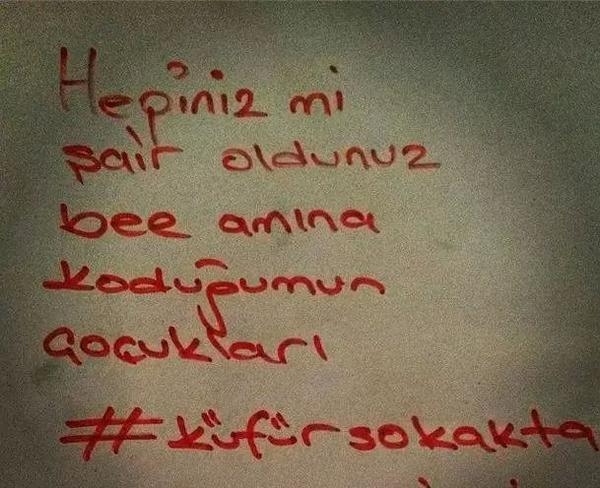 Hepiniz mi
şair oldunuz
bee amına
koduğumun
çocukları
#küfürsokakta